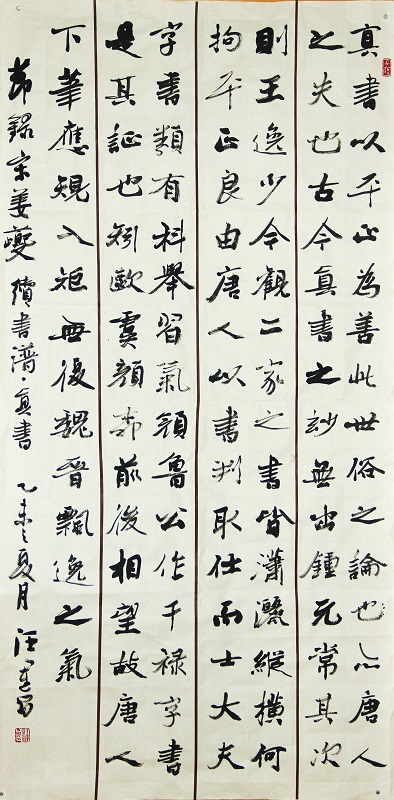 真書以平正為善此世俗之論也亦唐人
之失也古今真書之妙無出鍾元常其次
則王逸少今觀二家之書皆瀟灑縱橫何
拘平正良由唐人以書判取仕而士大夫
字書類有科舉習氣顏魯公作干祿字書
是其證也矧歐虞顏柳前後相望故唐人
下筆應規入矩無復魏晉飄逸之氣
節錄宋姜夔續書譜·真書 乙未之夏月 汪